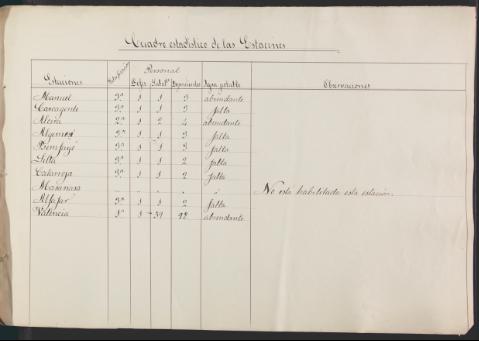 Cuadro estadistico de las Estaciones
Personal
Estaciones Categoria Gefes Agua potable Observaciones
Manuel 3ª 1 1 3 abundante
Carcagente 3ª 1 1 3 falta
Alcira 2ª 1 2 4 abundante
Algemesi 3ª 1 1 3 falta
Benifayó 3ª 1 1 3 falta
Silla 3ª 1 1 2 falta
Catarroja 3ª 1 1 2 falta
Masanasa No esta habilitada esta estacion.
Alfafar 3ª 1 1 2 falta
Valencia 1ª 1 abundante